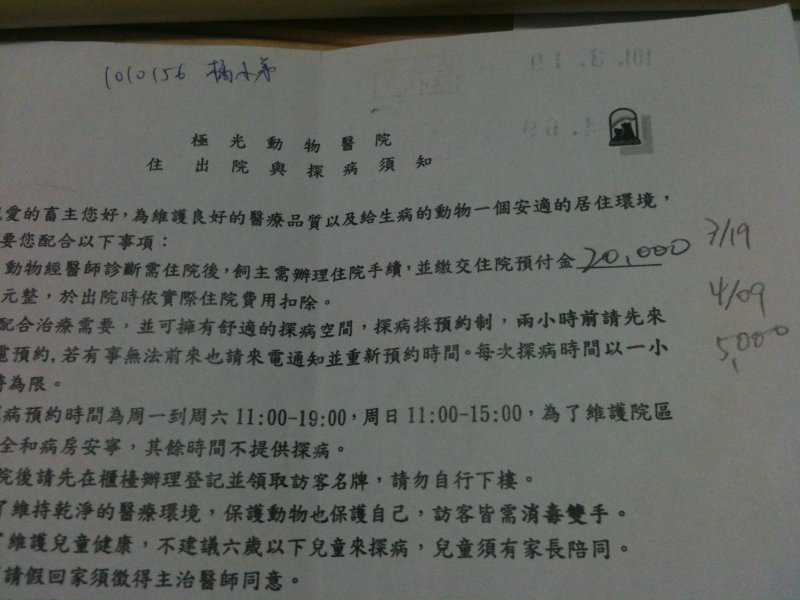 1010156 橘小弟
101. 3. 19
4. 09
極光動物醫院
住出院與探病須知
愛的畜主您好，為維護良好的醫療品質以及給生病的動物一個安適的居住環境，
要您配合以下事項：
動物經醫師診斷需住院後，飼主需辦理住院手續，並繳交住院預付金20,000 3/19
元整，於出院時依實際住院費用扣除。
4/09
配合治療需要，並可擁有舒適的探病空間，探病採預約制，兩小時前請先來
5,000
電預約，若有事無法前來也請來電通知並重新預約時間。每次探病時間以一小
時為限。
病預約時間為周一到周六11:00-19:00，周日11:00-15:00，為了維護院區
全和病房安寧，其餘時間不提供探病。
院後請先在櫃檯辦理登記並領取訪客名牌，請勿自行下樓。
了維持乾淨的醫療環境，保護動物也保護自己，訪客皆需消毒雙手。
維護兒童健康，不建議六歲以下兒童來探病，兒童須有家長陪同。
請假回家須徵得主治醫師同意。